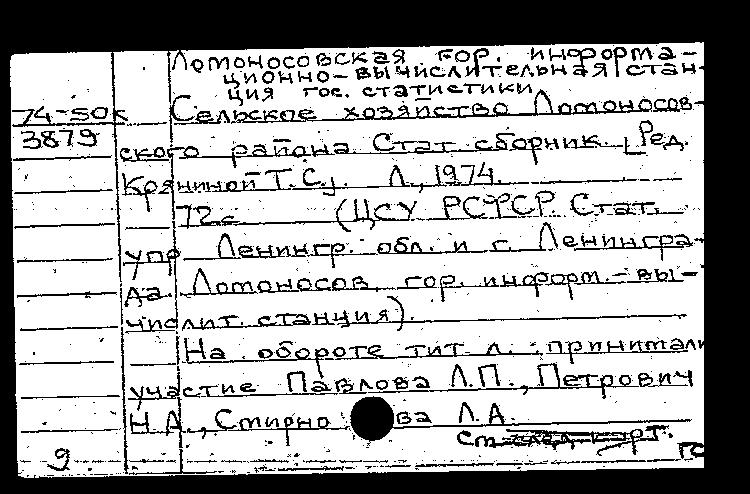 Ломоносовская гор. информа-
ционно-вычислительная стан-
ция гос. статистики
74-50к
Сельское хозяйство Ломоносов-
3879
ского района. Стат. сборник. [Ред.
Кряниной Т.С.]. Л., 1974.
72с. (ЦСУ РСФСР. Стат.
упр. Ленингр. обл. и г. Ленингра-
да. Ломоносов. гор. информ.-вы-
числит. станция).
На обороте тит. л.: принимали
участие Павлова Л.П., Петрович
Н.А., Смирно ва Л.А.
См. след. карт.
9